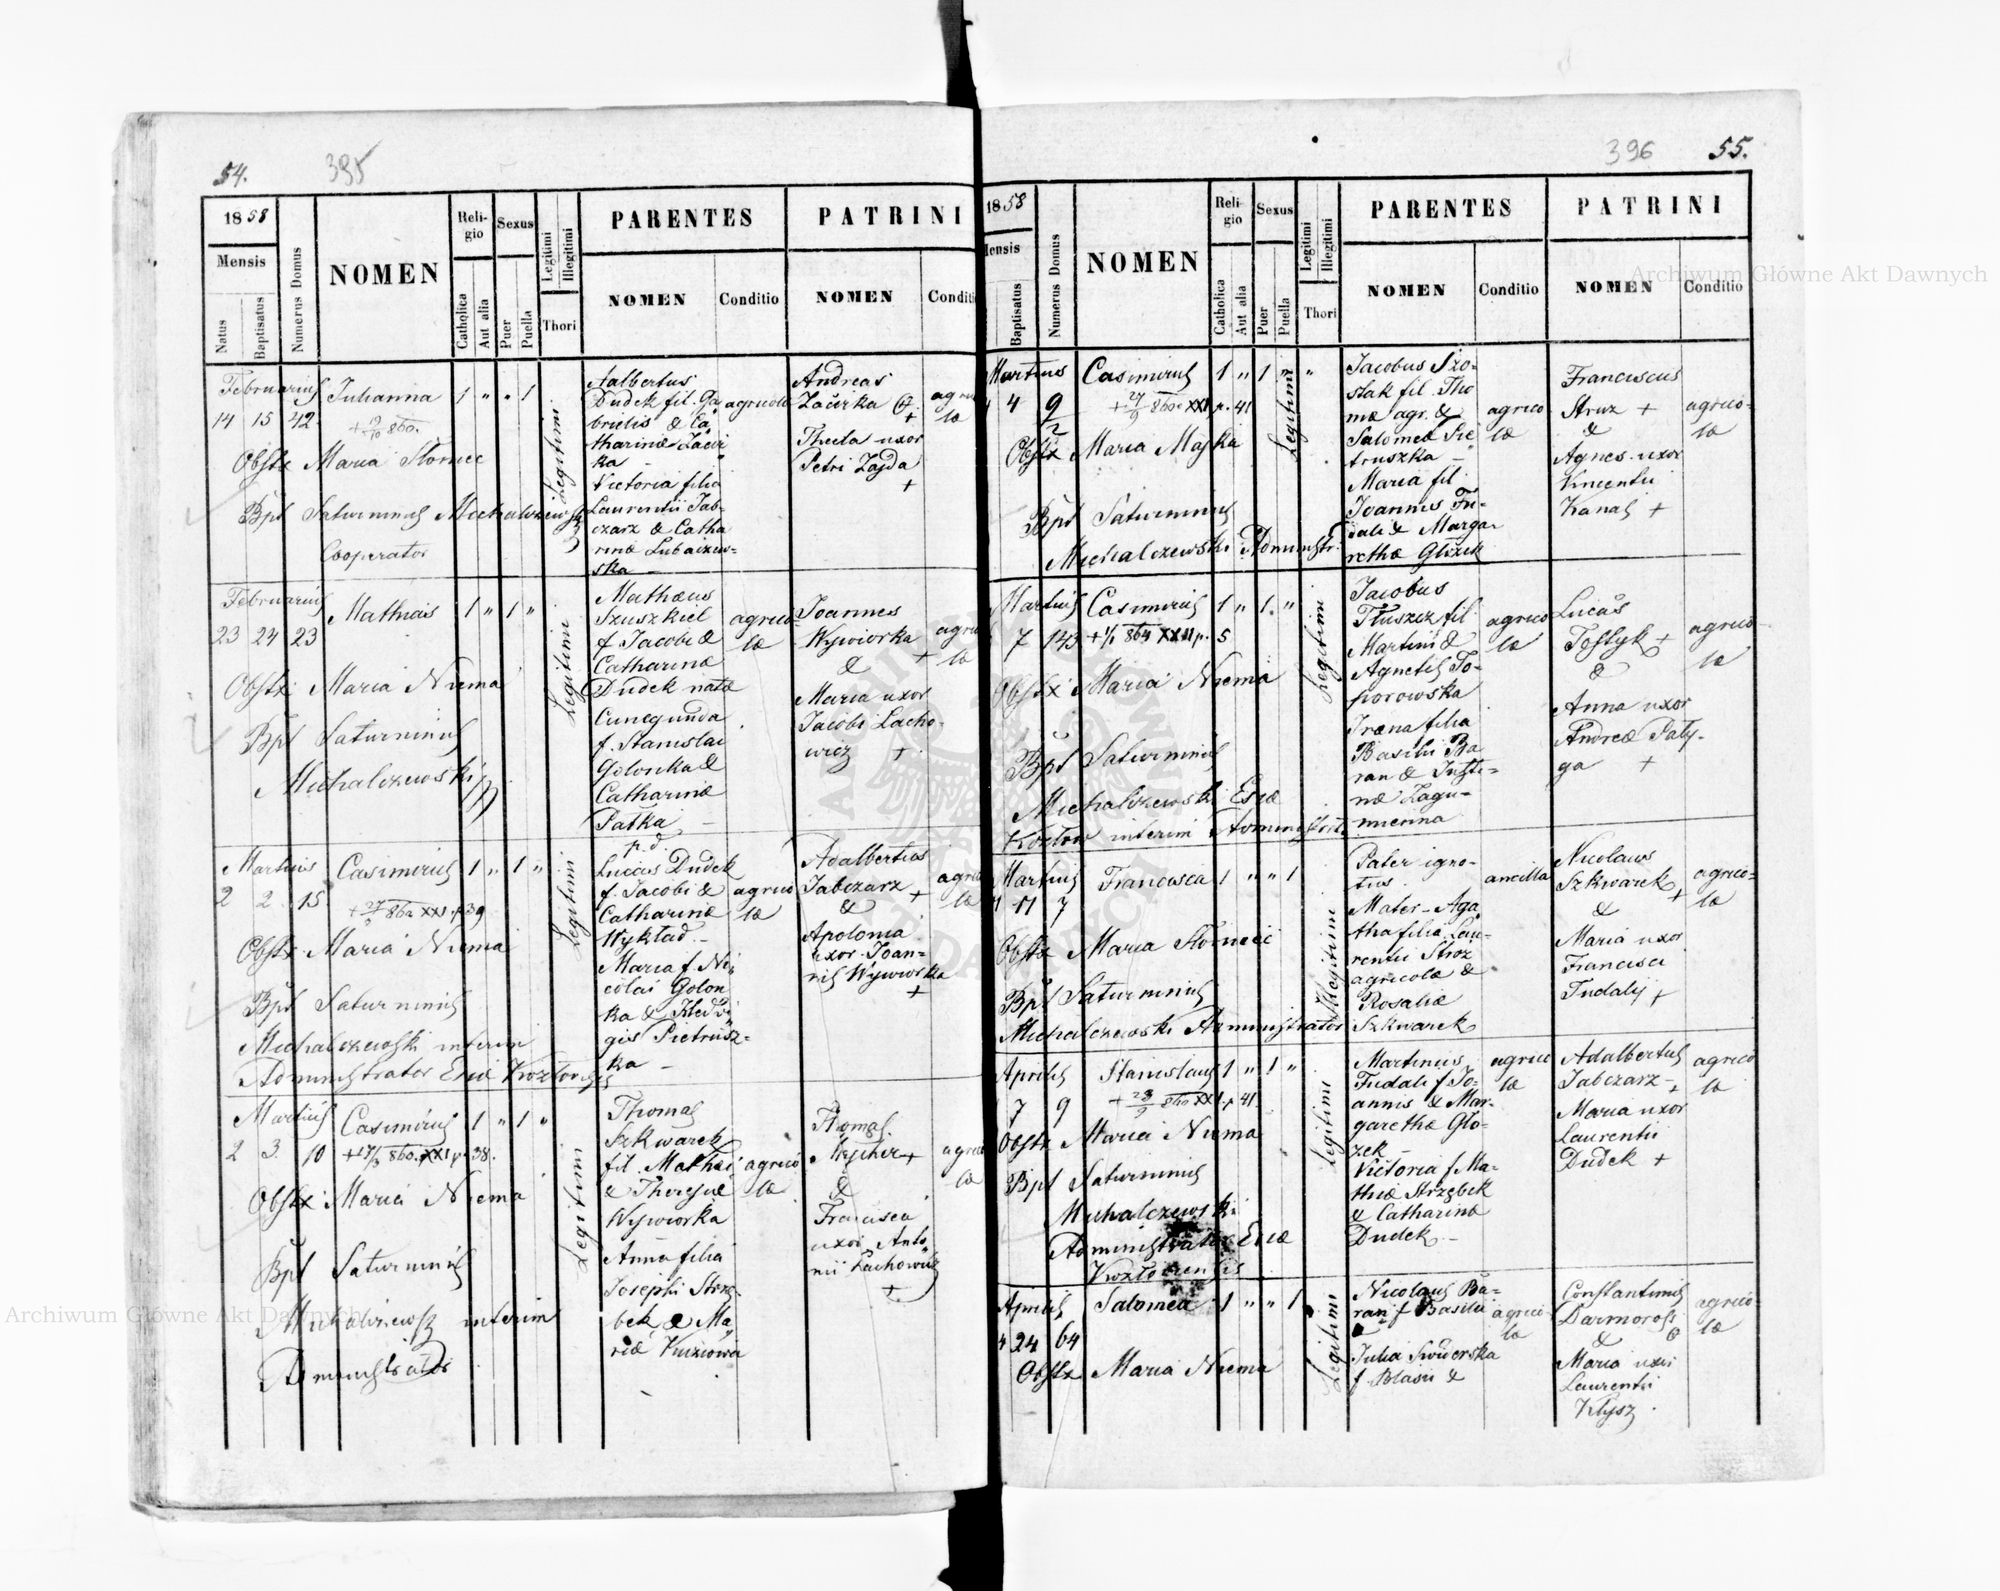 54.
395
1858
Mensis
Natus
Baptisatus
Numerus Domus
NOMEN
Reli-
gio
Catholica
Aut alia
Sexus
Puer
Puella
Legitimi
Illegitimi
Thori
PARENTES
NOMEN
Conditio
PATRINI
NOMEN
Februarius
14 15 42.
Julianna
1 " " 1
Legitimi
Obstx Maria Słomiec
Bpt Saturninus Michalczewski
Cooperator
Aalbertus
Dudek fil. Ga
brielis & Ca
tharinæ
ka –
Victoria filia
Laurentii Jab-
czarz & Catha
rinæ
ska
agricola
Andreas
Zacirka
+
Thecla uxor
Petri Zajda
+
Februarius
23 24 23
Mathias
1 " 1 "
Legitimi
Obstx Maria Niema
Bpt Saturninus
Michalczewski
Mathæus
Szuszkiel
f Jacobi &
Catharinæ
Dudek natæ
Cunegunda
f. Stanislai
Golonka &
Catharinæ
Pałka –
agrico
læ
Joannes
Wywiorka
& +
Maria uxor
Jacobi Lacho-
wicz +
Martius
2 2 15
Casimirus
1 " 1 "
Legitimi
Obstx Maria Niema
Bpt Saturninus
Michalczewski interim
Administrator Eccæ
p.d.
Lucas Dudek
f. Jacobi &
Catharinæ
Wykład –
Maria f. Ni
colai Golon
ka & Hedvi
gis Pietrusz-
ka –
agrico
læ
Adalbertus
Jabczarz +
&
Apolonia
uxor Joan-
nis Wywiorka
+
Martius
2 3 10
Casimirus
1 " 1 "
Legitimi
Obstx Maria Niema
Bpt Saturninus
interim
Administrator
Thomas
Szkwarek
fil. Mathæi
& Theresiæ
Wywiorka
Anna filia
Josephi Strzę-
bek & Ma
riæ
agrico
læ
Thomas
+
&
Francisca
uxor Anto
nii Lachowicz
+
396
55.
1858
Mensis
Baptisatus
Numerus Domus
NOMEN
Reli-
gio
Catholica
Aut alia
Sexus
Puer
Puella
Legitimi
Illegitimi
Thori
PARENTES
NOMEN
Conditio
PATRINI
NOMEN
Conditio
Martius
4 9
Casimirus
1 " 1 " "
Legitimi
Obstx Maria
Bpt Saturninus
Michalczewski Administr.
Jacobus Szo-
stak fil. Tho
mæ agr. &
Salomeæ Pie
truszka –
Maria fil
Joannis Fu-
dali & Marga-
rethæ
agrico
læ
Franciscus
Stróz +
&
Agnes uxor
Vincentii
Kanas +
agrico-
læ
Martius
7 143
Casimirus
1 " 1. "
Legitimi
Obstx Maria Niema
Bpt Saturninus
Michalczewski Eccæ
interim Administrat.
Jacobus
Tłuszcz fil
Martini &
Agnetis To-
porowska
Irena filia
Basilii Ba
ran & Justi-
næ Zagu-
mienna
agrico
læ
Lucas
+
&
Anna uxor
Andreæ Paly-
ga +
agrico-
læ
Martius
11 7
Francisca
1 " " 1
Illegitimi
Obstx Maria Słomiec
Bpt Saturninus
Michalczewski Administrator
Pater igno-
tus.
Mater – Aga
tha filia Lau-
rentii Stroz
agricolæ &
Rosaliæ
Szkwarek
ancilla
Nicolaus
Szkwarek +
&
Maria uxor
Francisci
Fudaly +
agrico-
læ
Aprilis
7 9
Stanislaus
1 " 1 "
Legitimi
Obstx Maria Niema
Bpt Saturninus
Michalczewski
Administrator Eccæ
Martinus
Fudali f Jo-
annis & Mar-
garethæ Gło-
zek –
Victoria f Ma-
thiæ Strzębek
& Catharinæ
Dudek –
agrico
læ
Adalbertus
Jabczarz +
Maria uxor
Laurentii
Dudek +
agrico
læ
Aprilis
24 64
Salomea
1 " " 1
Legitimi
Obstx Maria Niema
Nicolaus Ba-
ran f Basilii
&
Julia Swiderska
f. Blasii &
agrico
læ
Constantinus
&
Maria uxor
Laurentii
Kłysz.
agrico-
læ
Archiwum Główne Akt Dawnych
Archiwum Główne Akt Dawnych